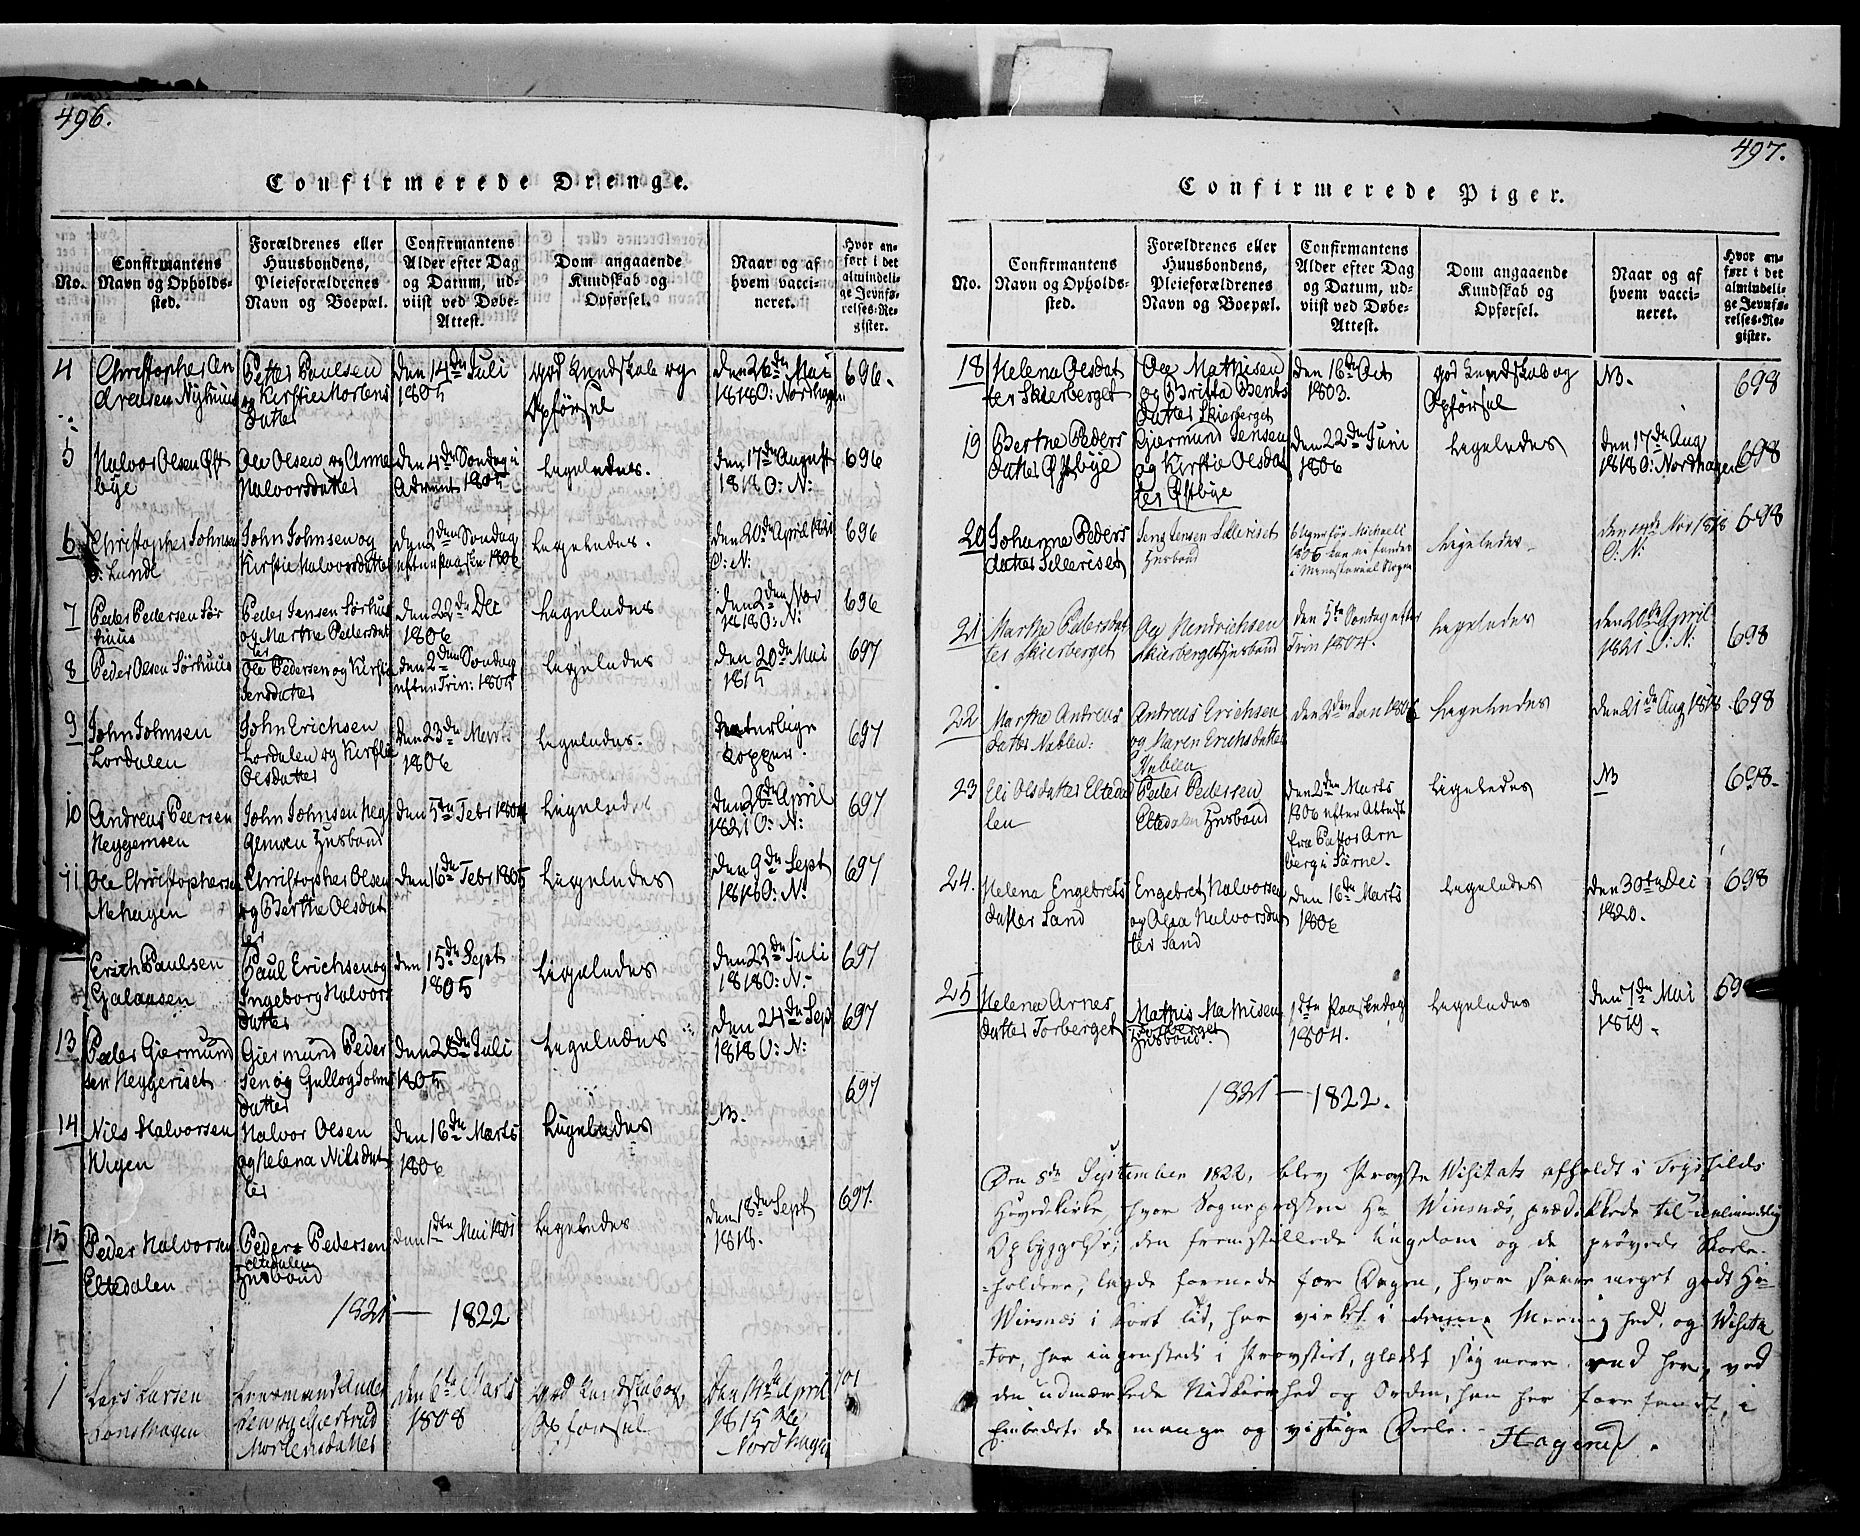 496.
Confirmerede Drenge.
No.
Confirmantens
Navn og Opholds-
sted.
Forældrenes eller
Huusbondens,
Pleieforældrenes
Navn og Boepæl.
Confirmantens
Alder efter Dag
og Datum, ud-
viist ved Døbe-
Attest.
Dom angaaende
Kundskab og
Opførsel.
Naar og af
hvem vacci-
neret.
Hvor an-
ført i det
almindeli-
ge Jevnfø-
relses-Re-
gister.
4
Christopher An
dreasen Nyhuus
Petter Paulsen
og Kirstie Mortens
datter
den 14de Juli
1805
god Kundskab og
Opførsel
den 26de Mai
1818 O: Nordhagen
696.
5
Halvor Olsen Øst
bye
Ole Olsen og Anne
Halvorsdatter
den 4de Søndag i
Advent 1805
Ligeledes.
den 17de August
1818 O: N:
696
6
Christopher Johnsen
Lunde
John Johnsen og
Kirstie Halvorsdatter
den 2den Søndag
efter Paaske 1806
Ligeledes.
den 20de April 1821
O: N:
696
7
Peder Pedersen Sør
huus
Peder Jensen Sørhuus
og Marthe Pedersdat
ter
den 22de Dec
1806
Ligeledes
den 2den Nov
1818 O: N:
696
8
Peder Olsen Sørhuus
Ole Pedersen og Kirstie
Jensdatter
den 2den Søndag
efter Trin: 1805
Ligeledes
den 20de Mai
1815
697
9
John Johnsen
Lordalen
John Erichsen
Lordalen og Kirstie
Olsdatter
den 23de Marts
1806
Ligeledes.
naturlige
Kopper.
697
10
Andreas Peersen
Heggemoen
John Johnsen Heg
gemoen Husbond
den 5te Febr 1804
Ligeledes
den 20de April
1821 O: N:
697
11
Ole Christophersen
Mehagen
Christopher Olsen
og Berthe Olsdat
ter
den 16de Febr 1805
Ligeledes
den 9de Sept
1818 O: N:
697
Erich Paulsen
Galaasen
Paul Erichsen og
Ingeborg Halvors
datter
den 15de Sept
1805
Ligeledes
den 22de Juli
1818 O: N:
697
13
Peder Giermund
sen Heggeriset
Giermund Peder
sen og Gullog Johns
datter
den 28de Juli
1805
Ligeledes
den 24de Sept
1818 O: N:
697
14
Nils Halvorsen
Wigen
Halvor Olsen
og Helena Nilsdat
ter
den 16de Marts
1806
Ligeledes
NB.
697
15
Peder Halvorsen
Eltedalen
Peder Pedersen
Eltedalen
Husbond
den 1ste Mai 1801
Ligeledes
den 18de Sept
1818.
697.
1821 — 1822
1
Lars Larsen
Lars
og Giertrud
Mortensdatter
den 6te Marts
1808
god Kundskab og
Opførsel
den 14de April
1815 Ole
Nordhagen
701
497.
Confirmerede Piger.
No.
Confirmantens
Navn og Opholds-
sted.
Forældrenes eller
Huusbondens,
Pleieforældrenes
Navn og Boepæl.
Confirmantens
Alder efter Dag
og Datum, ud-
viist ved Døbe-
Attest.
Dom angaaende
Kundskab og
Opførsel.
Naar og af
hvem vacci-
neret.
Hvor an-
ført i det
almindeli-
ge Jevnfø-
relses-Re-
gister.
18
Helena Olesdat
ter Skierberget
Ole Mathisen
og Britta Bents
datter Skierberget
den 16de Oct
1803.
god Kundskab og
Opførsel
NB.
698
19
Berthe Peders
datter Østbye
Giermund Jensen
og Kirstie Olsdat
ter Østbye
den 22de Juni
1806
Ligeledes
den 17de Aug
1818 O: Nordhagen
698
20
Johanne Peders
datter Sileriset
Jens Jensen Sileriset
Husbond
6 Uger før Michaeli
1805 kan ei findes
i Ministerial Bogen
Ligeledes
Nov 1818
O: N:
698
21
Marthe Pedersdat
ter Skierberget
Ole Hendrichsen
Skierberget Husbond
den 5te Søndag efter
Trin 1804.
Ligeledes
den 20de April
1821 O: N:
698
22
Marthe Andreas
datter Nablen:
Andreas Erichsen
og Maren Erichsdatter
Nablen
den 2den Jan 1806
Ligeledes
den 21de Aug 1818
698
23
Eli Olsdatter Elteda
len
Peder Pedersen
Eltedalen Husbond
den 2den Marts
1806 efter Attest
fra Pastor Arn
berg i Særne.
Ligeledes
NB
698.
24.
Helena Engebrets
datter Sand
Engebret Halvorsen
og Olea Halvorsdat
ter Sand
den 16de Marts
1806
Ligeledes
den 30te Dec
1820.
698
25
Helena Arnes
datter Torberget
Mathis Mathisen
Torberget
Husbond.
1ste Paaskedag
1804.
Ligeledes
den 7de Mai
1819.
69
1821 — 1822.
Den 8de September 1822, blev Provste Visitats afholdt i Trysilds
Hovedkirke, hvor Sognepræsten Hr Winsnes, prædikede til almindelig
Opbyggelse; den fremstillede Ungdom og de prøvede Skole-
holdere, lagde for Dagen, hvor meget godt Hr
Winsnes i kort tid, har virket i denne Menighed, og Visita
tor, har ingensteds i Provstiet, glædet sig mere end her, ved
den udmærkede Nidkierhed og Orden, han har i
Embedets mange og vigtige Dele.
Hagerup.